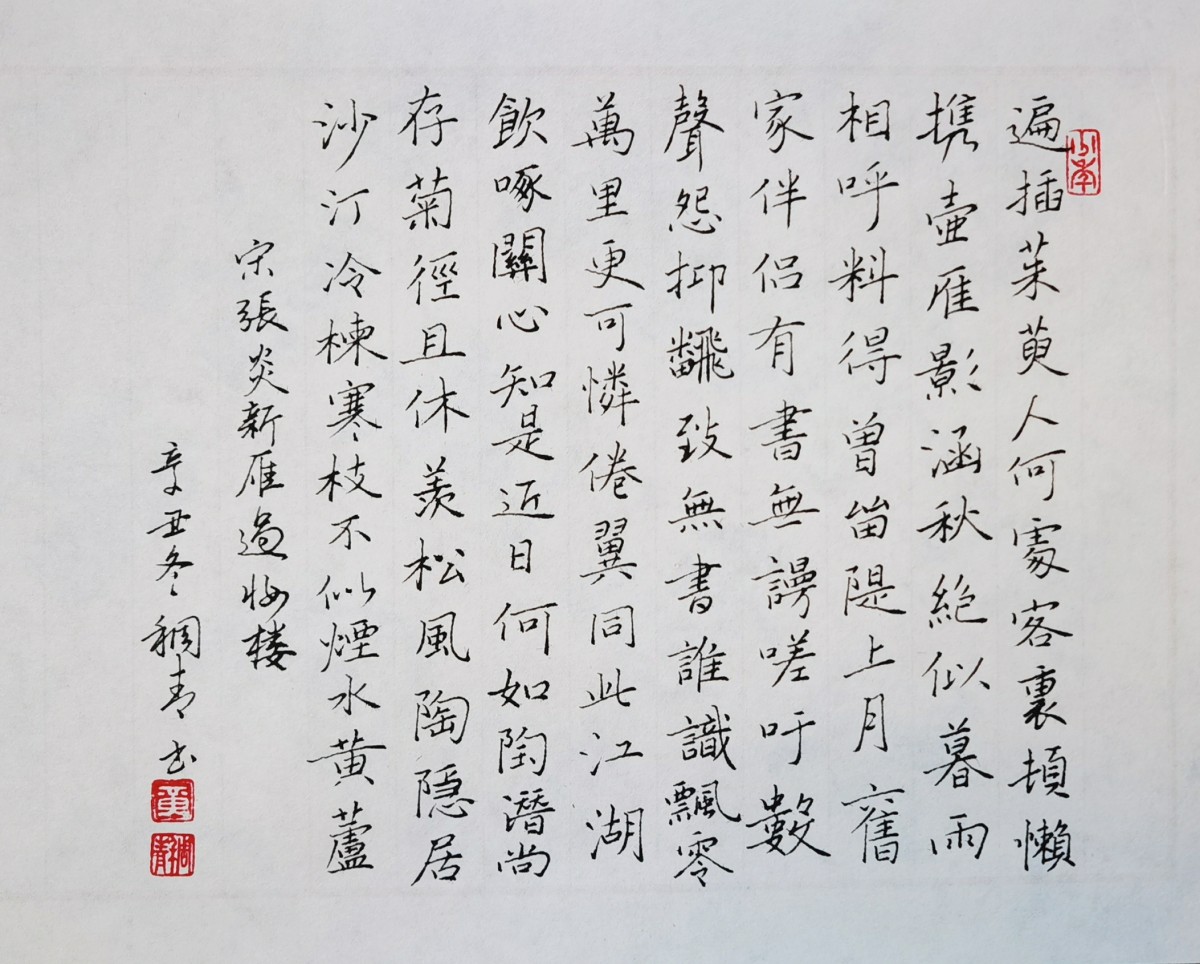 遍插茱萸人何處客裏頓懶
携壺雁影涵秋絶似暮雨
相呼料得曽畄隄上月舊
家伴侣有書無謾嗟吁數
聲怨抑飜致無書誰識飄零
萬里更可憐倦翼同此江湖
飲啄關心知是近日何如陶潛尚
存菊徑且休羨松風陶隱居
沙汀冷楝寒枝不似煙水黄蘆
宋張炎新雁過妝楼
辛丑冬稠青书